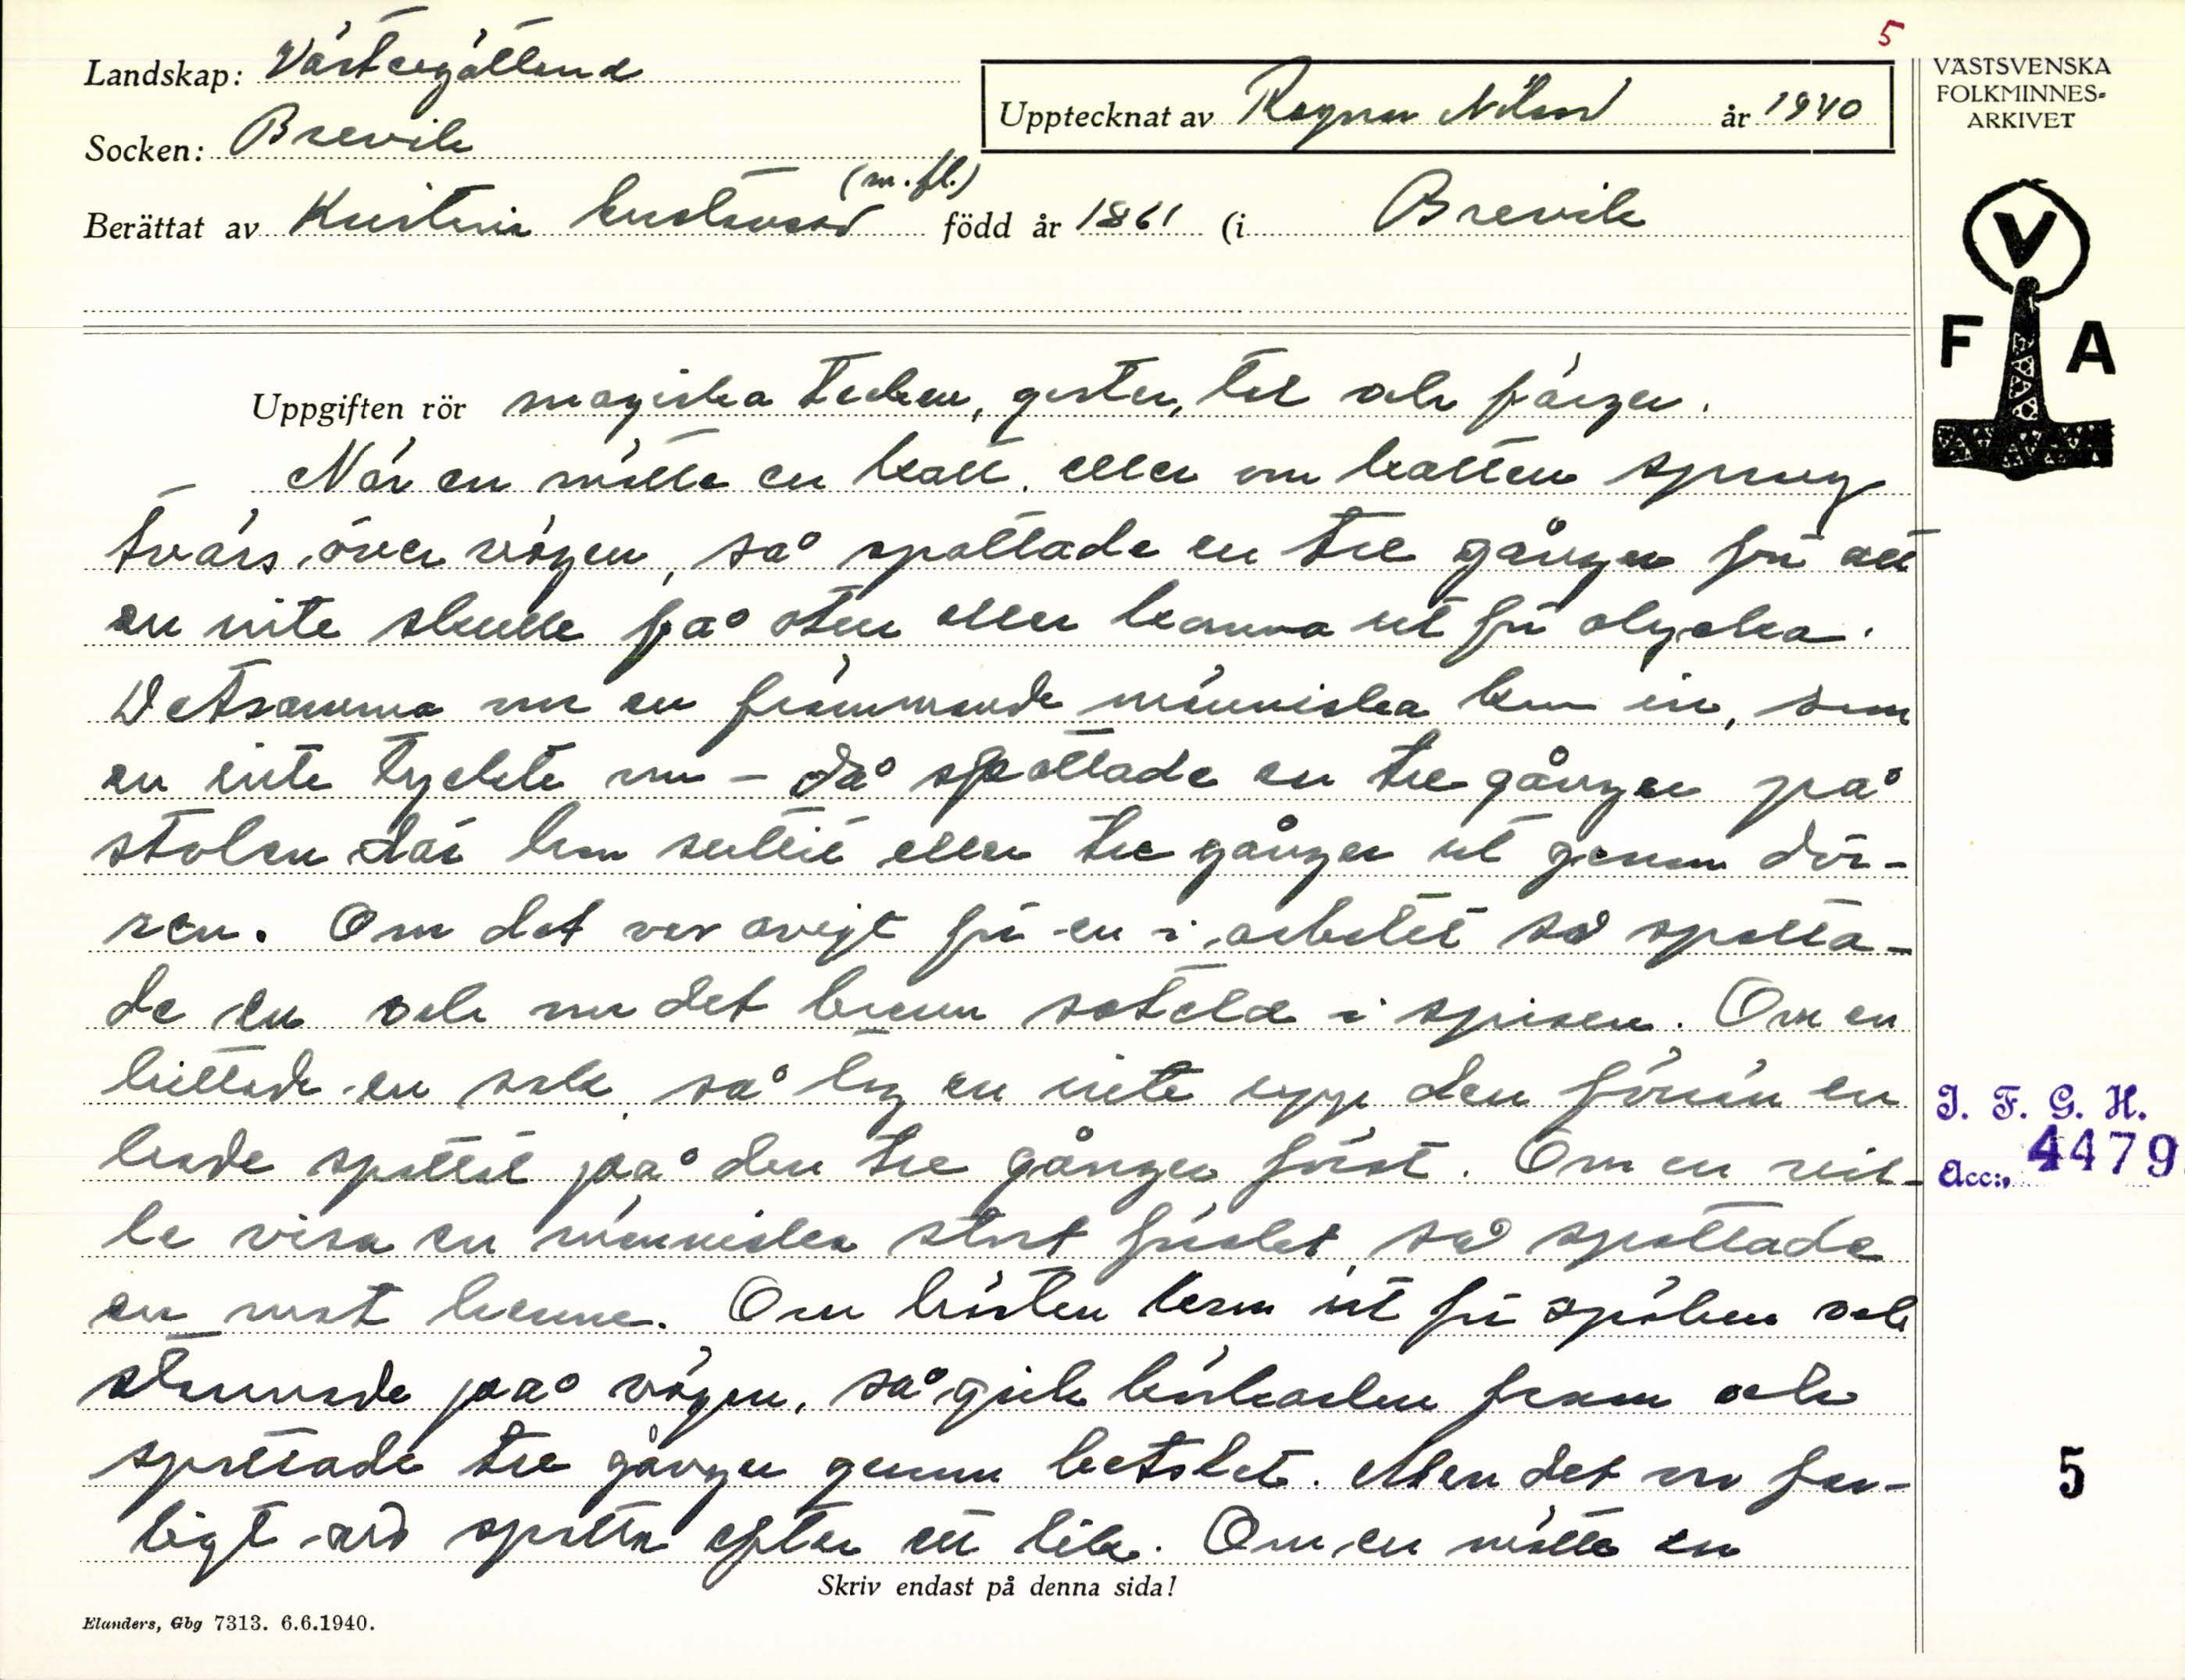 5
Landskap: Västergötland
Upptecknat av Ragnar Nilsson år 1940
VÄSTSVENSKA
FOLKMINNES-
ARKIVET
Socken: Brevik
(m. fl.)
Berättat av Kristina Gustavsson född år 1861 (i Brevik
V
F A
Uppgiften rör magiska tecken, gester, tal och färger.
När en mötte en katt. eller om katten sprang
tvärs över vägen, så spottade en tre gånger för att
en inte skulle få otur eller komma ut för olycka.
Detsamma om en främmande människa kom in, som
en inte tyckte om – då spottade en tre gånger på
stolen där hon suttit eller tre gånger ut genom dör-
ren. Om det var avigt för en i arbetet så spotta-
de en och om det brann soteld i spisen. Om en
hittade en sak så tog en inte upp den förrän en
hade spottat på den tre gånger först. Om en vil-
le visa en människa stort förakt så spottade
en mot henne. Om hästen kom ut för spöken och
stannade på vägen, så gick körkarlen fram och
spottade tre gånger genom betslet. Men det var far-
ligt att spotta efter ett lik. Om en mötte en
Skriv endast på denna sida!
Elanders, Gbg 7313. 6.6.1940.
I. F. G. H.
Acc:, 4479
5